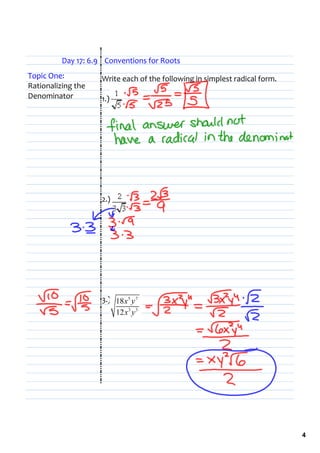 Day 17: 6.9 Conventions for Roots
Topic One:
Rationalizing the
Denominator
Write each of the following in simplest radical form.
1.) 1/√5 · √5/√5 = √5/√25 = √5/5
final answer should not
have a radical in the denominat
2.) 2 · √3 / √3 = 2√3/9
3·3
3·√9
3·3
√10/√5 = √10/5
3.) √(18x⁵y⁷/12x³y³) = √(3x²y⁴/2) = √(3x²y⁴)/√2 · √2/√2
= √(6x²y⁴)/2
= xy²√6/2
4